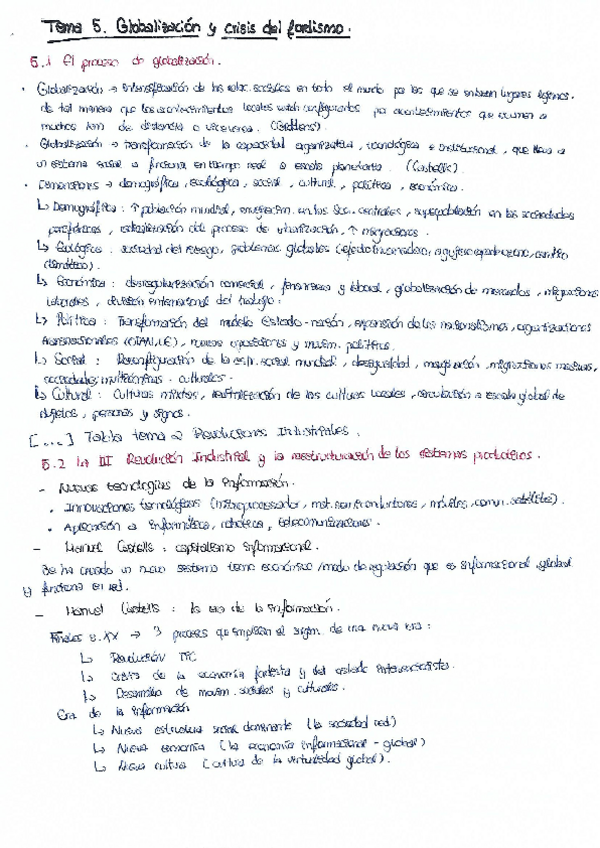 Tema 5. Globalización y crisis del fordismo.
5.1 El proceso de globalización.
· Globalización → intensificación de las relac. sociales en todo el mundo por las que se enlazan lugares lejanos.
de tal manera que los acontecimientos locales están configurados por acontecimientos que ocurren a
muchos km de distancia o viceversa. (Giddens).
· Globalización → transformación de la capacidad organizativa, tecnológica e institucional, que lleva a
un sistema social a funcionar en tiempo real a escala planetaria. (Castells).
· Dimensiones → demográfica, ecológica, social, cultural, política, económica.
↳ Demográfica: ↑ población mundial, en las Soc. centrales, superpoblación en las sociedades
periféricas, del proceso de urbanización, ↑ migraciones.
↳ Ecológica: sociedad del riesgo, problemas globales (efecto invernadero, agujero capa de ozono, cambio
climático).
↳ Económica: desregularización comercial, financiera y laboral, globalización de mercados, migraciones
laborales, división internacional del trabajo.
↳ Política: Transformación del modelo Estado-nación, expansión de los nacionalismos, organizaciones
transnacionales (OTAN, UE), nuevas oposiciones y movim. políticos.
↳ Social: Reconfiguración de la estr. social mundial, desigualdad, marginación, migraciones masivas,
sociedades multiétnicas - culturales.
↳ Cultural: Culturas híbridas, de las culturas locales, circulación a escala global de
objetos, personas y signos.
[...] Tabla tema 2 Revoluciones Industriales.
5.2 La III Revolución Industrial y la reestructuración de los sistemas productivos.
- Nuevas tecnologías de la información.
· Innovaciones tecnológicas (microprocesador, mat. semiconductores, móviles, comun. satélites).
· Aplicación a informática, robótica, telecomunicaciones.
- Manuel Castells: capitalismo informacional.
Se ha creado un nuevo sistema tecno económico/modo de regulación que es informacional, global
y funciona en red.
- Manuel Castells: la era de la información.
Finales s.XX → 3 procesos que implican el surgim. de una nueva era:
↳ Revolución TIC
↳ Crisis de la economía fordista y del estado intervencionista.
↳ Desarrollo de movim. sociales y culturales.
Era de la información
↳ Nueva estructura social dominante (la sociedad red)
↳ Nueva economía (la economía informacional - global)
↳ Nueva cultura (cultura de la virtualidad global).